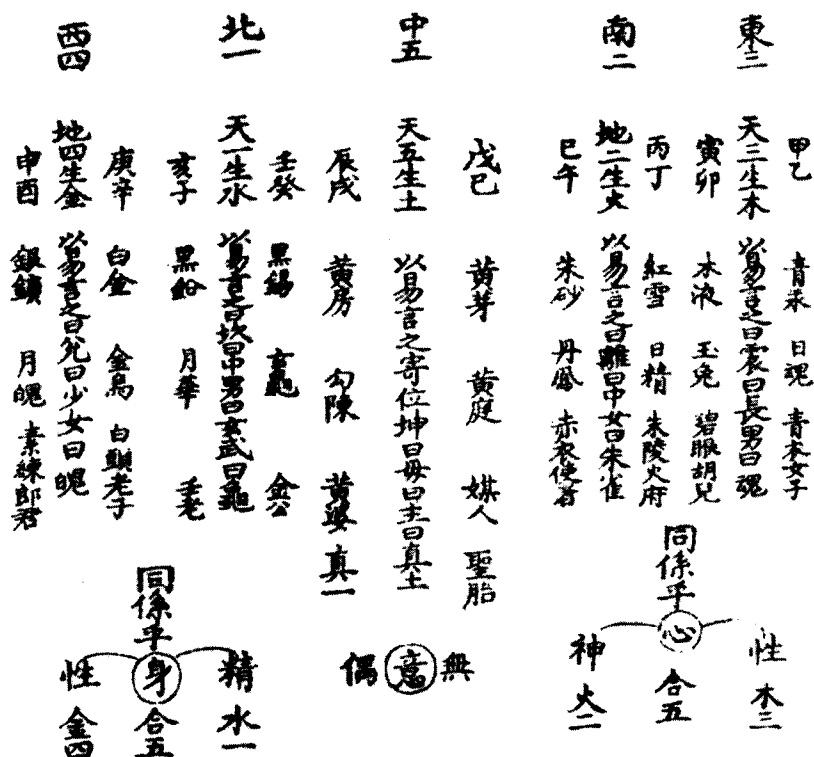 東三
甲乙 青汞 日魂 青衣女子
天三生木 以易言之曰震曰長男曰魂
寅卯 木液 玉兔 碧眼胡兒
南二
丙丁 紅雪 日精 朱陵火府
地二生火 以易言之曰離曰中女曰朱雀
巳午 朱砂 丹鳳 赤衣使者
同係乎
心
性 木三
合五
神 火二
中五
戊己 黃芽 黃庭 媒人 聖胎
天五生土 以易言之寄位坤曰母曰主曰真土
辰戌 黃房 勾陳 黃婆 真一
無
意
偶
北一
壬癸 黑錫 玄龜 金公
天一生水 以易言之曰坎曰中男曰玄武曰龜
亥子 黑鉛 月華 壬老
西四
庚辛 白金 金烏 白頭老子
地四生金 以易言之曰兌曰少女曰魄
申酉 銀鑛 月魄 素練郎君
同係乎
身
精 水一
合五
性 金四